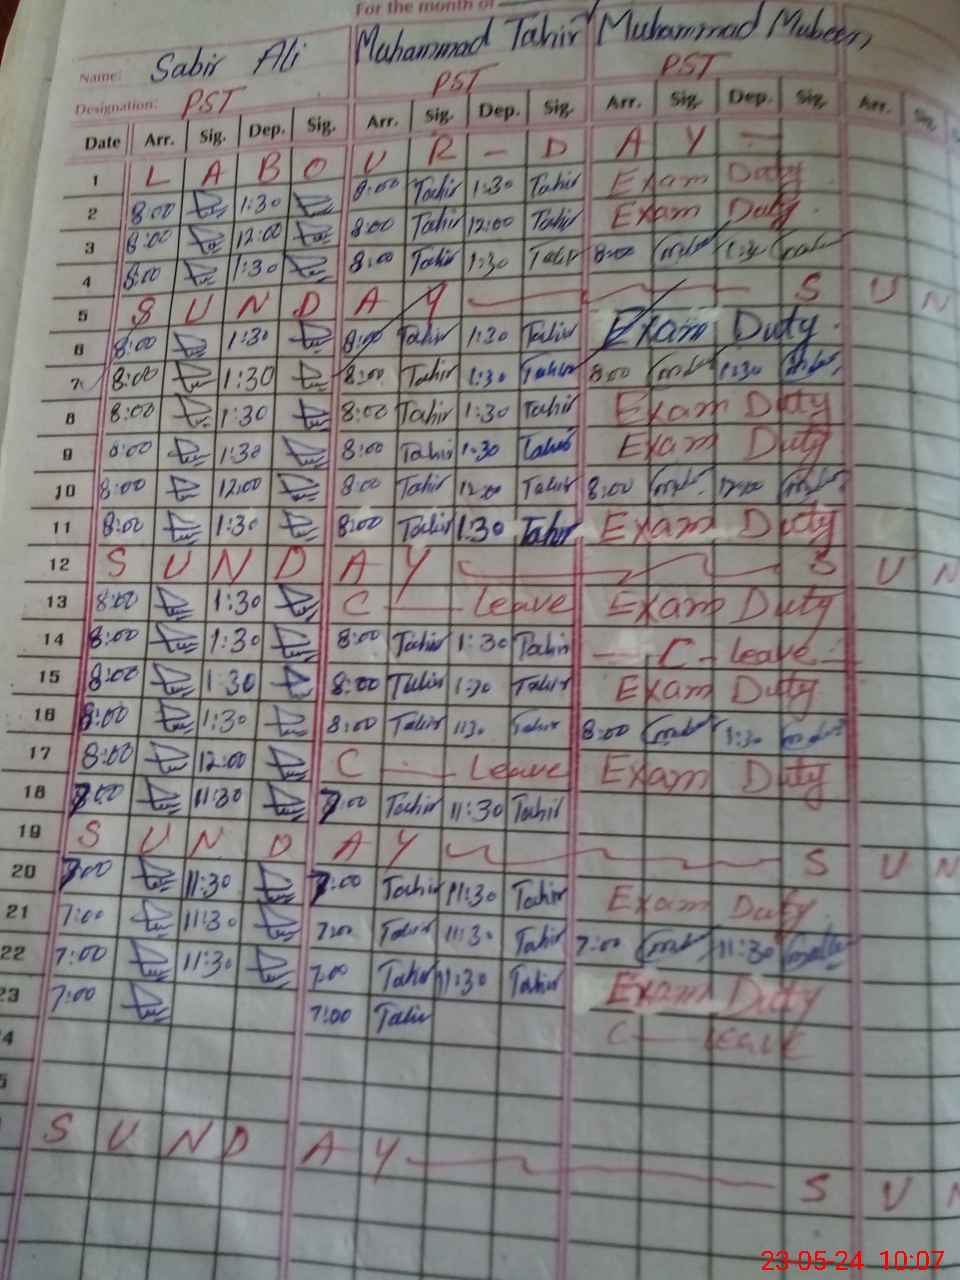 For the month of
Name: Sabir Ali Muhammad Tahir Muhammad Mubeen
Designation: PST PST PST
Date Arr. Sig. Dep. Sig. Arr. Sig. Dep. Sig. Arr. Sig. Dep. Sig. Arr. Sig.
1 L A B O U R - D A Y -
2 8:00 1:30 8:00 Tahir 1:30 Tahir Exam Duty
3 8:00 12:00 8:00 Tahir 12:00 Tahir Exam Duty
4 8:00 1:30 8:00 Tahir 1:30 Tahir 8:00 1:30
5 S U N D A Y S U N
6 8:00 1:30 8:00 Tahir 1:30 Tahir Exam Duty
7 8:00 1:30 8:00 Tahir 1:30 Tahir 8:00 1:30
8 8:00 1:30 8:00 Tahir 1:30 Tahir Exam Duty
9 8:00 1:30 8:00 Tahir 1:30 Tahir Exam Duty
10 8:00 12:00 8:00 Tahir 12:00 Tahir 8:00 12:00
11 8:00 1:30 8:00 Tahir 1:30 Tahir Exam Duty
12 S U N D A Y S U N
13 8:00 1:30 C — Leave Exam Duty
14 8:00 1:30 8:00 Tahir 1:30 Tahir C - Leave
15 8:00 1:30 8:00 Tahir 1:30 Tahir Exam Duty
16 8:00 1:30 8:00 Tahir 1:30 Tahir 8:00 1:30
17 8:00 12:00 C — Leave Exam Duty
18 7:00 11:30 7:00 Tahir 11:30 Tahir
19 S U N D A Y S U N
20 7:00 11:30 7:00 Tahir 11:30 Tahir Exam Duty
21 7:00 11:30 7:00 Tahir 11:30 Tahir 7:00 11:30
22 7:00 11:30 7:00 Tahir 11:30 Tahir Exam Duty
23 7:00 7:00 Tahir C — Leave
4
5
S U N D A Y S U N
23-05-24 10:07